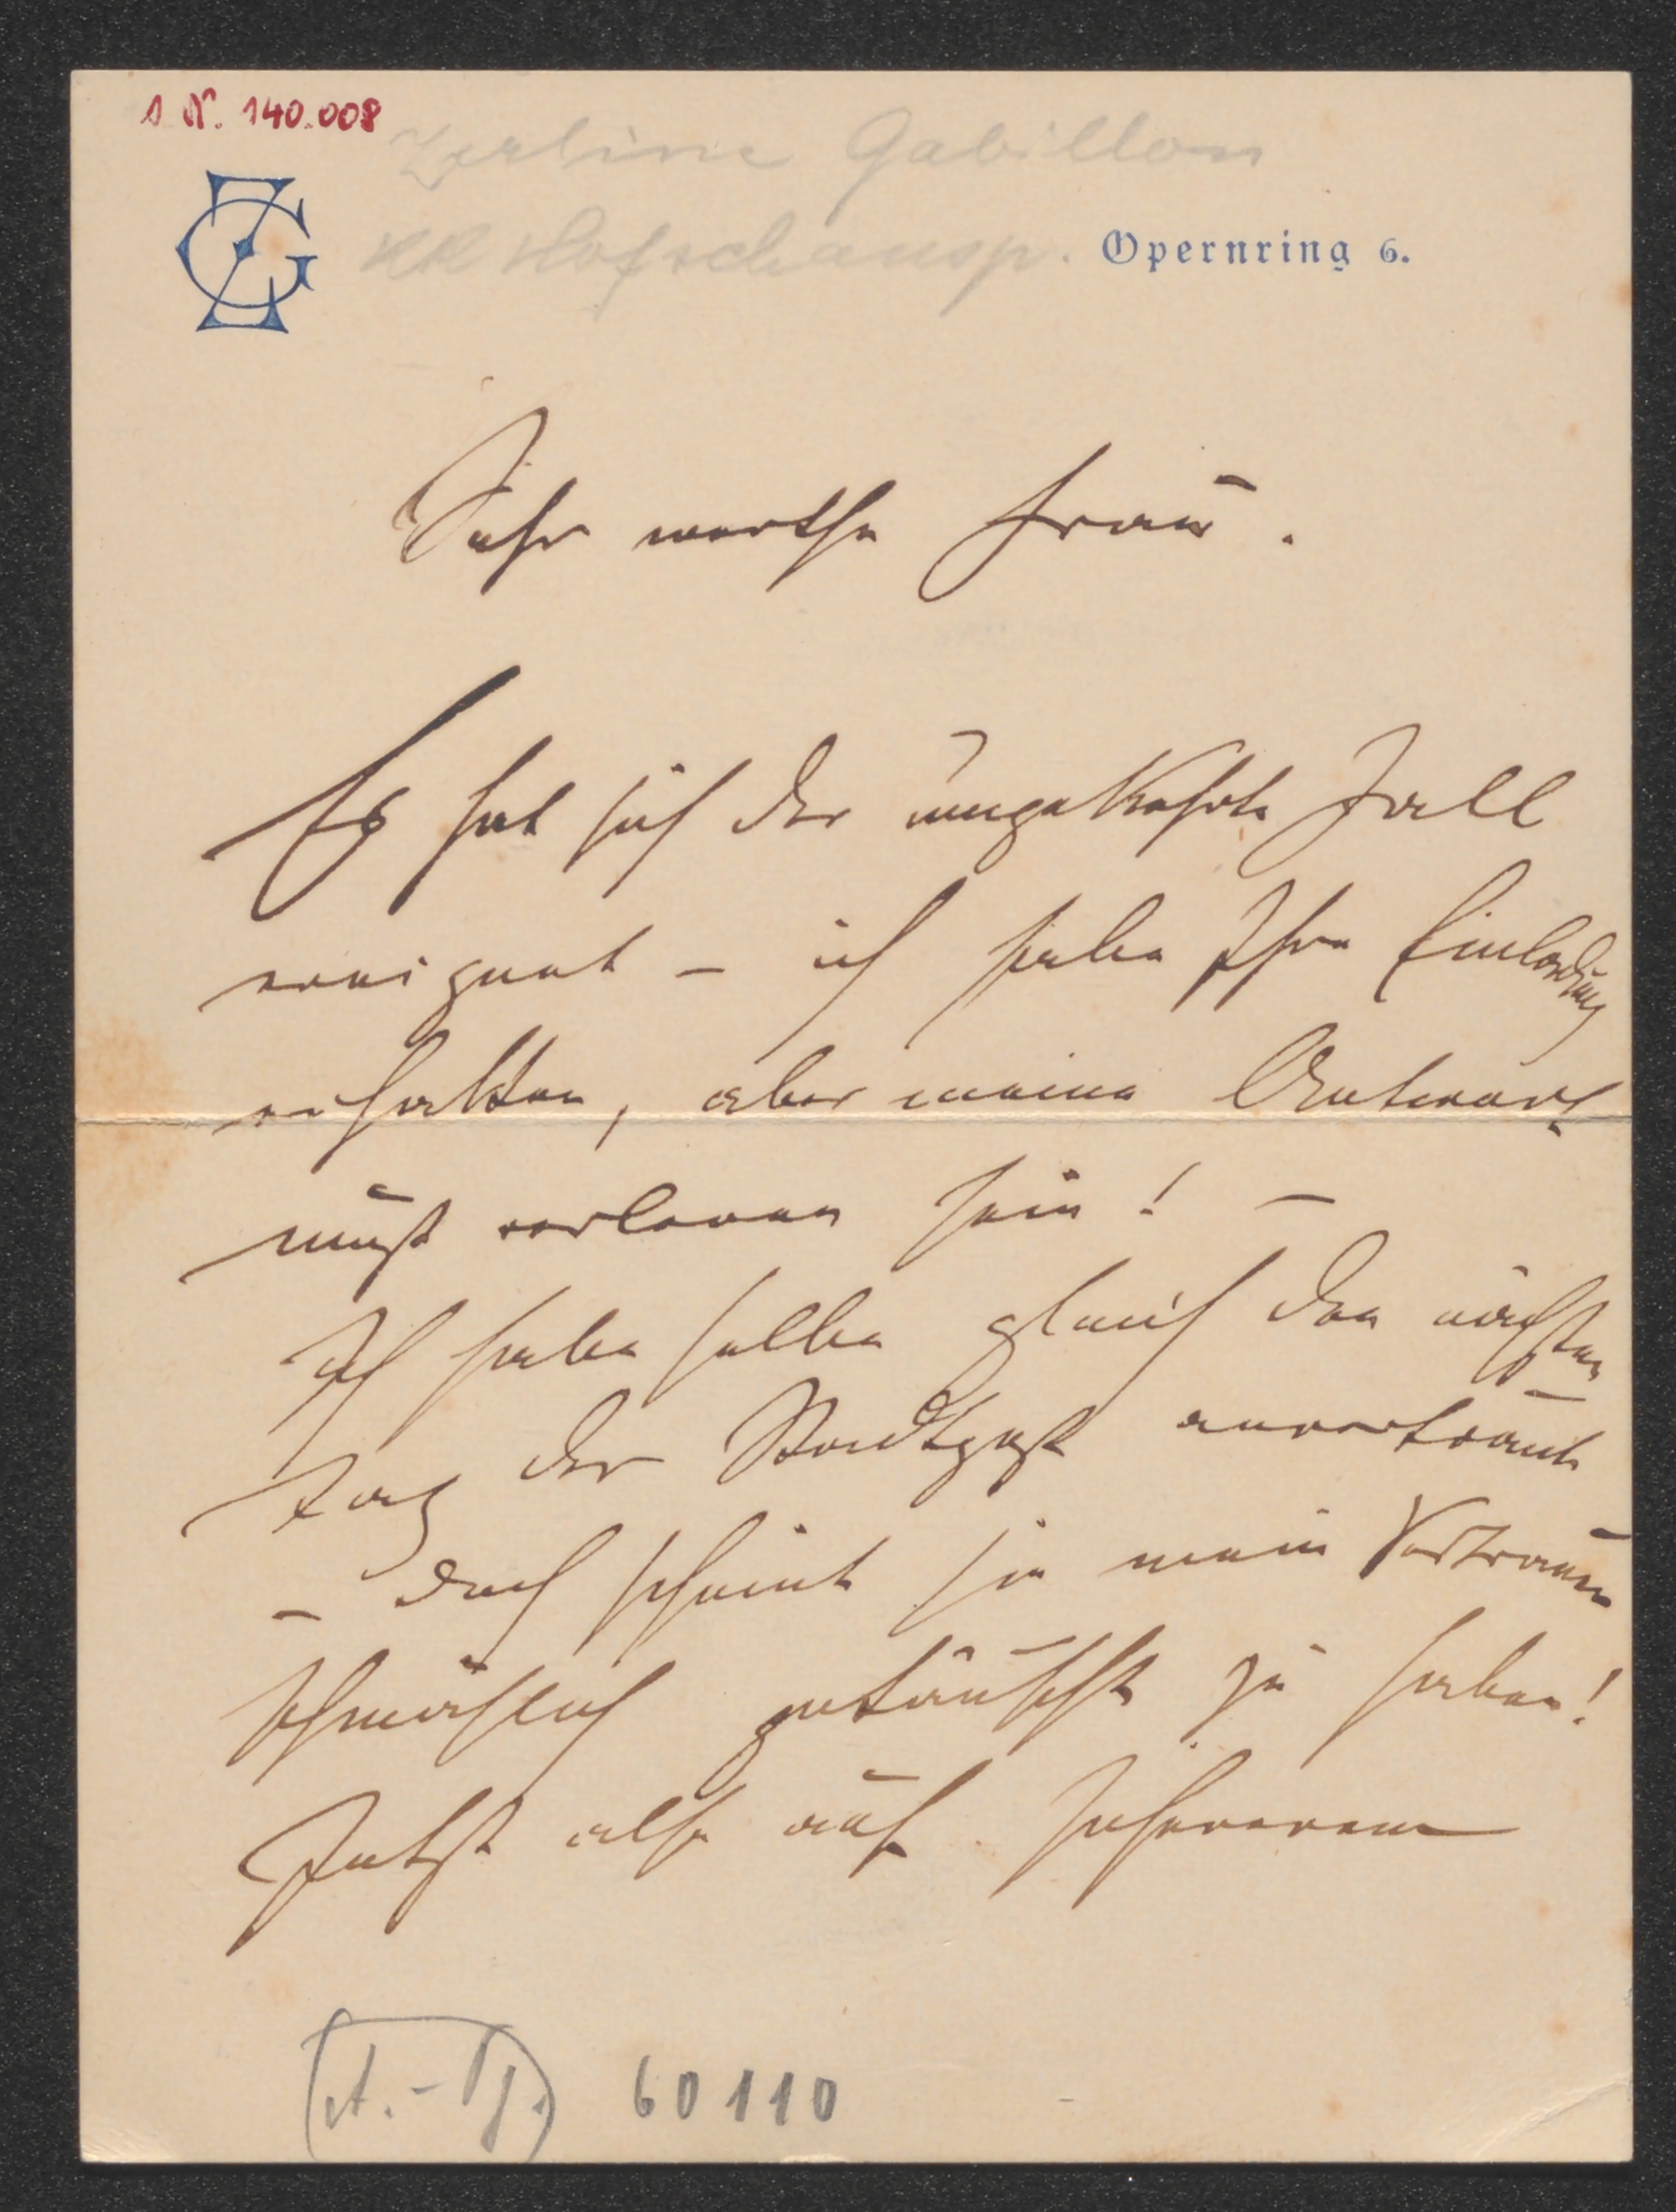 I. N. 140.008
Zerline Gabillon
KK Hofschausp.
Opernring 6.
Sehr werthe Frau.
Es hat sich der umgekehrte Fall
ereignet – ich habe Ihre Einladung
erhalten, aber meine Antwort
muß verloren sein! –
Ich habe selbe gleich den nächsten
Tag der Stadtpost anvertraut
– doch scheint sie mein Vertrauen
schmählich getäuscht zu haben!
Jetzt also auf
60110